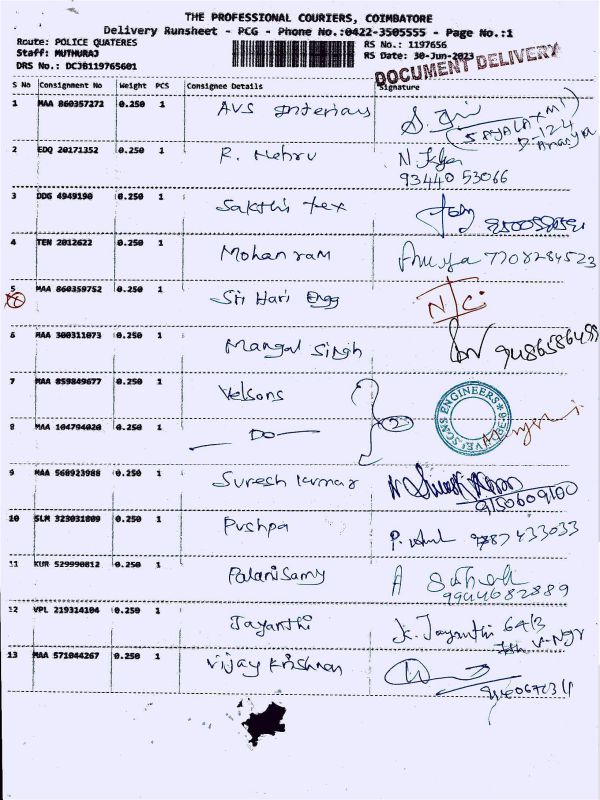 THE PROFESSIONAL COURIERS, COIMBATORE
Delivery Runsheet - PCG - Phone No.:0422-3505555 - Page No.:1
Route: POLICE QUATERES RS No.: 1197656
Staff: MUTHURAJ RS Date: 30-Jun-2023
DRS No.: DCJB119765601 DOCUMENT DELIVERY
S No Consignment No Weight PCS Consignee Details Signature
1 MAA 860357272 0.250 1 AVS Interiors
D-124
2 EDQ 20171352 0.250 1 R. Nehru
93440 53066
3 DDG 4949190 0.250 1 Sakthis tex
4 TEN 2012622 0.250 1 Mohan ram Anuya 7708284523
5 MAA 860359752 0.250 1 Sri Hari Engg N/C
6 MAA 300311073 0.250 1 Mangal Singh 9486586499
7 MAA 859849677 0.250 1 Velsons
VELSONS ENGINEERS
8 MAA 104794020 0.250 1 Do 2
9 MAA 560923988 0.250 1 Suresh kumar
9150609100
10 SLM 323031809 0.250 1 Pushpa P. 9787433033
11 KUR 529990812 0.250 1 Palanisamy A
9944682889
12 VPL 219314104 0.250 1 Jayanthi K. Jayanthi 64/3
7th V-Ngr
13 MAA 571044267 0.250 1 Vijay Krishnan